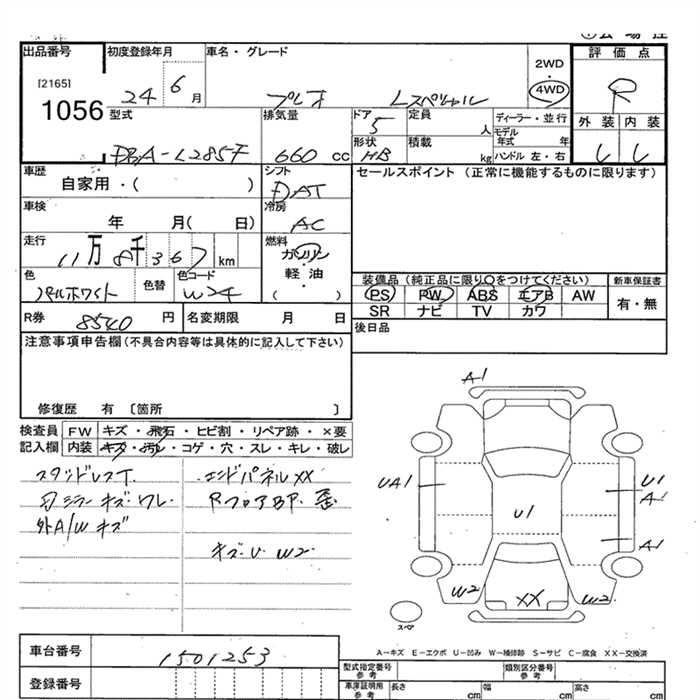 出品番号 初度登録年月 車名・グレード
[2165] 1056
24 6月 プレオ Lスペシャル
2WD ・ 4WD
評価点
R
外装 内装
型式 排気量 ドア 5 定員 人 ディーラー・並行
モデル年式 年
DBA-L285F 660cc 形状 HB 積載 kg ハンドル 左・右
車歴 シフト セールスポイント (正常に機能するものに限ります)
自家用・( ) DAT
車検 冷房
年 月( 日) AC
走行 燃料
11万8千367km ガソリン・
軽油
( )
色 色替 色コード
パールホワイト W24
装備品 (純正品に限り○をつけてください) 新車保証書
PS PW ABS エアB AW 有・無
SR ナビ TV カワ
R券 8540 円 名変期限 月 日
後日品
注意事項申告欄 (不具合内容等は具体的に記入して下さい)
修復歴 有 〔箇所 〕
検査員 FW キズ・飛石・ヒビ割・リペア跡・×要
記入欄 内装 キズ・汚れ・コゲ・穴・スレ・キレ・破レ
スタッドレスT. エンドパネルXX
ミラー キズ ワレ. RフロアBP. 歪
外A/W キズ
キズ・U W2
A1
UA1 U1 U1
A1
A1
W2 XX W2
スペア
A－キズ E－エクボ U－凹み W－補修跡 S－サビ C－腐食 XX－交換済
車台番号 1501253
登録番号
型式指定番号 参考 類別区分番号 参考
車庫証明用 参考 長さ cm 幅 cm 高さ cm